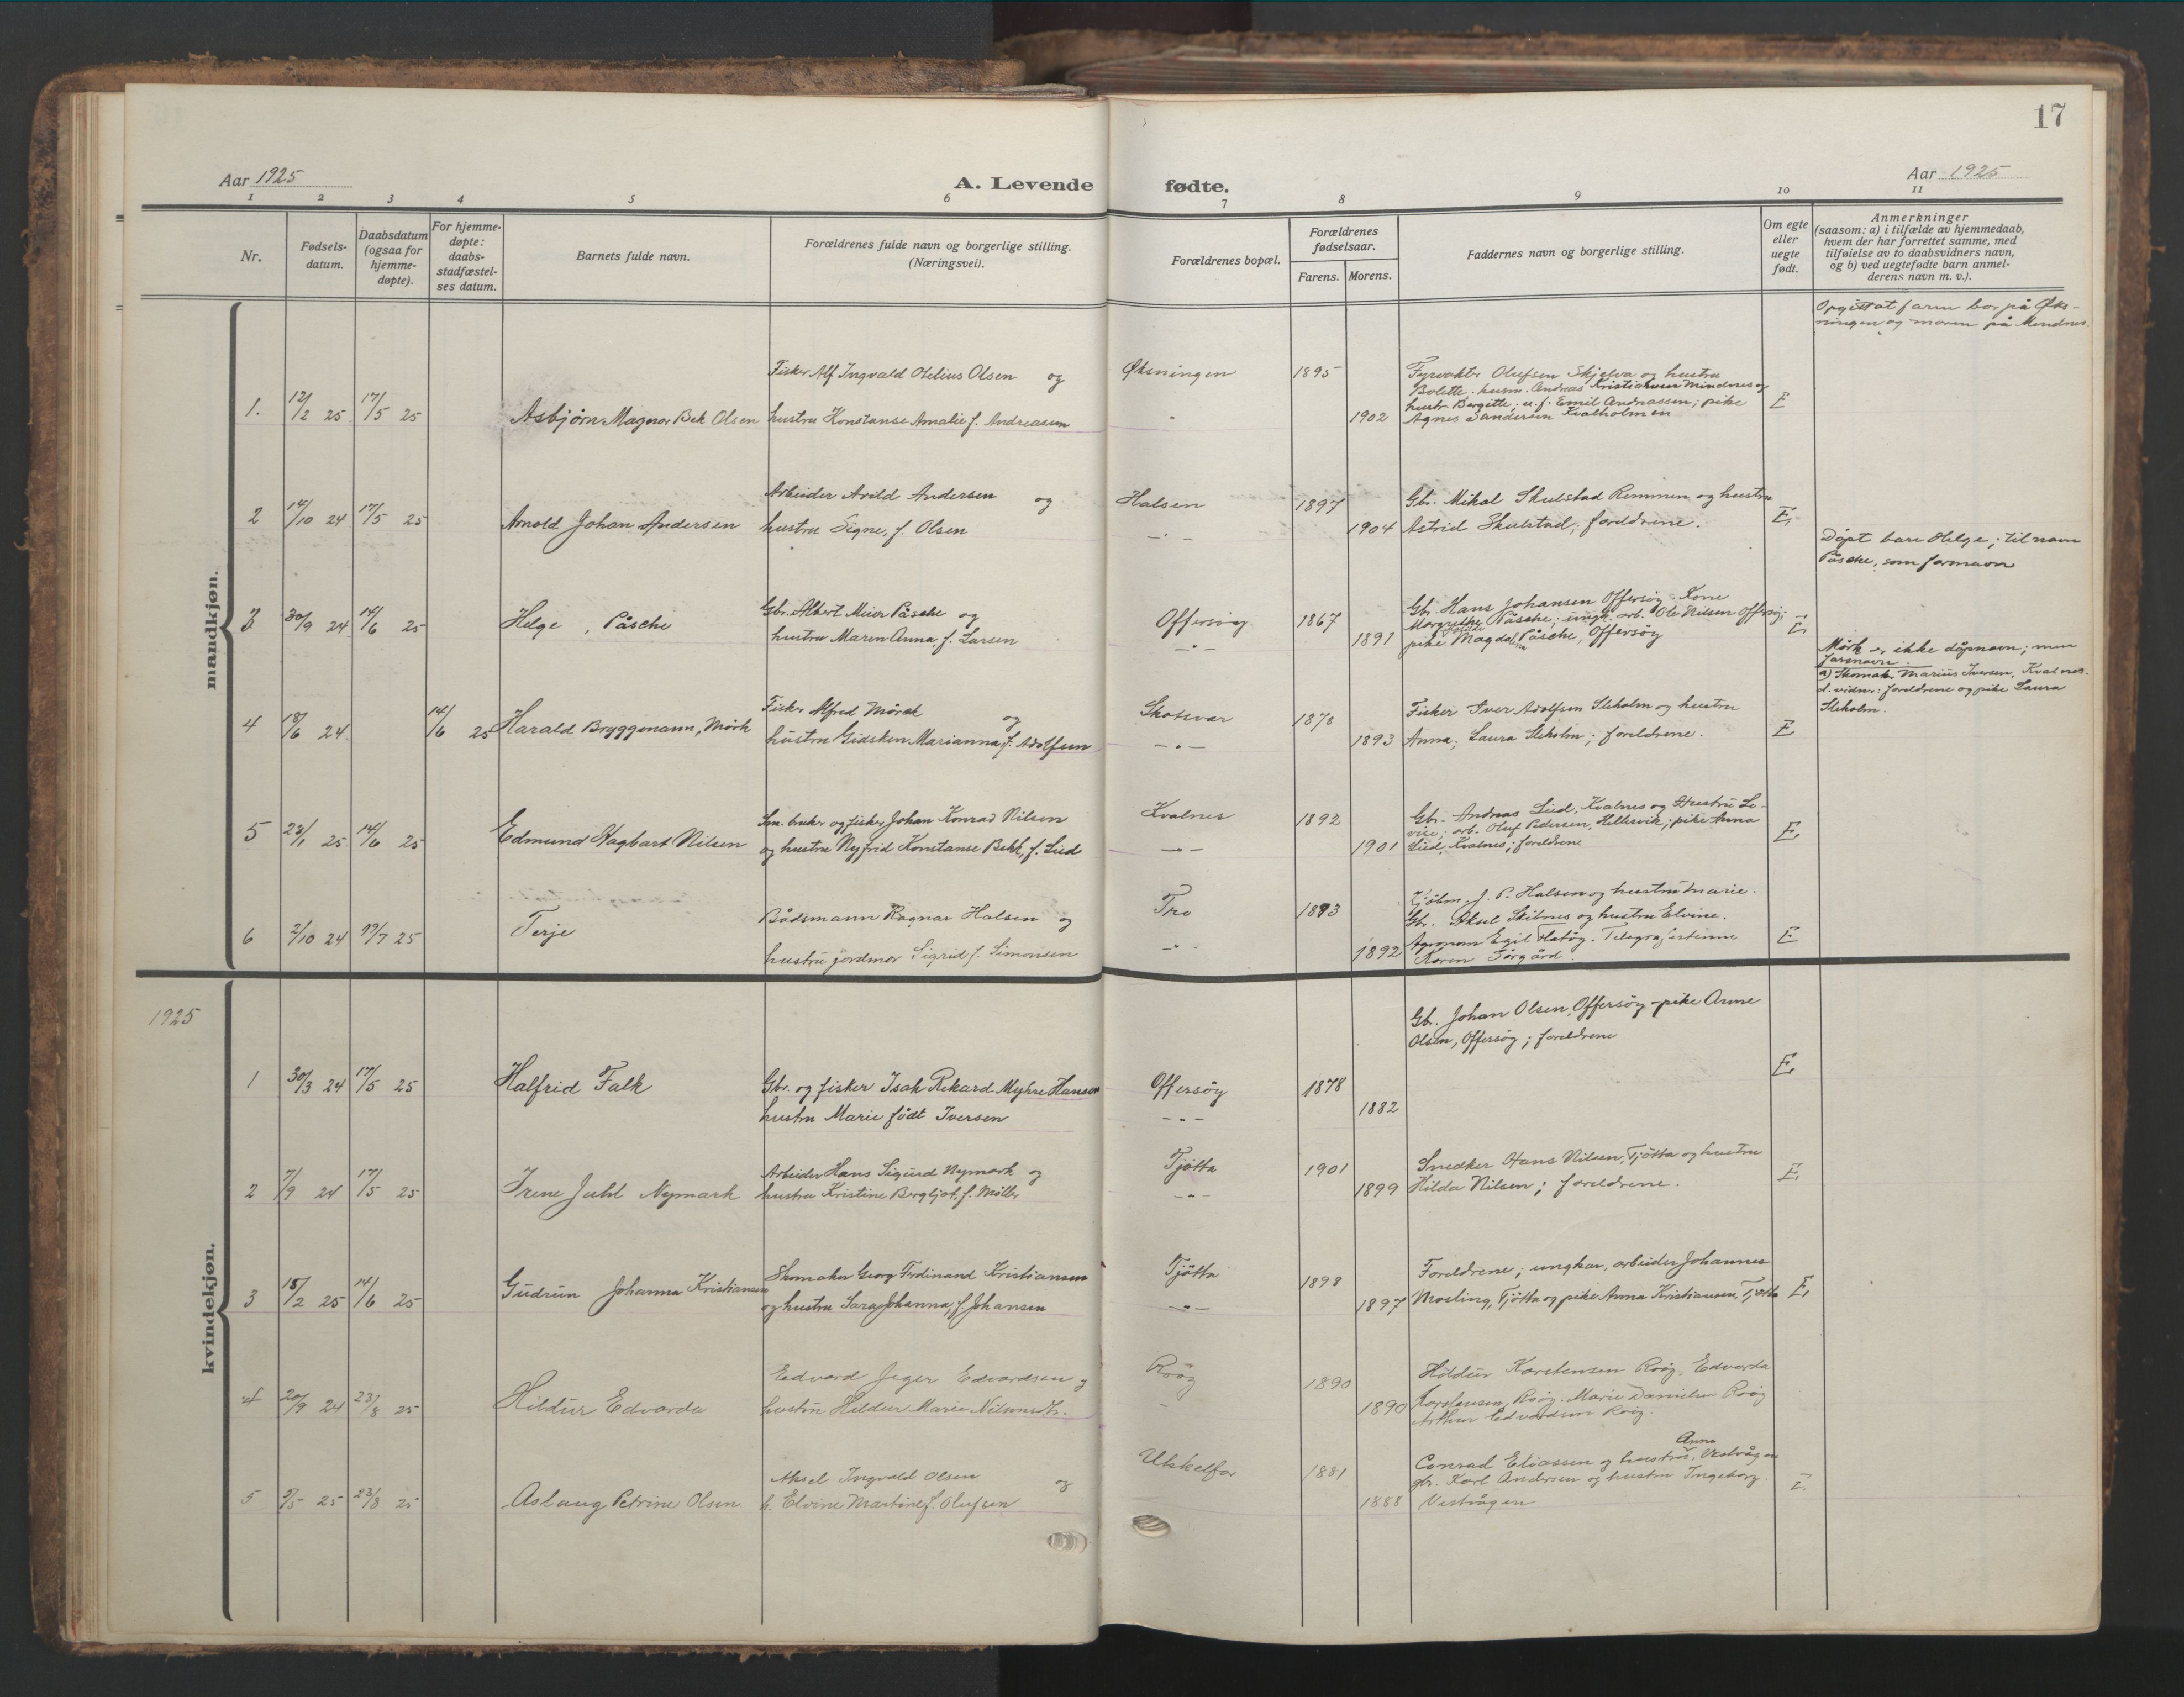 17
Aar 1925
A. Levende fødte.
Aar 1925
1 2 3 4 5 6 7 8 9 10 11
Nr.
Fødsels-
datum.
Daabsdatum
(ogsaa for
hjemme-
døpte).
For hjemme-
døpte:
daabs-
stadfæstel-
ses datum.
Barnets fulde navn.
Forældrenes fulde navn og borgerlige stilling.
(Næringsvei).
Forældrenes bopæl.
Forældrenes
fødselsaar.
Farens. Morens.
Faddernes navn og borgerlige stilling.
Om egte
eller
uegte
født.
Anmerkninger
(saasom: a) i tilfælde av hjemmedaab,
hvem der har forrettet samme, med
tilføielse av to daabsvidners navn,
og b) ved uegtefødte barn anmel-
derens navn m. v.).
mandkjøn.
1. 12/2 25 17/5 25 Asbjørn Magnor Bek Olsen
Fisker Alf Ingvald Otelius Olsen og
hustru Konstanse Amalie f. Andreasen
Øksningen 1895
" 1902
Fyrvokter Olufsen Skjelva og hustru
Bolette; husm. Andreas Kristiansen Mindnes og
hustr. Bergitte; u.f. Emil Andreassen; pike
Agnes Sandersen Kvalholmen
E
Opgitt at faren bor på Øks-
ningen og moren på Mindnes.
2 14/10 24 17/5 25 Arnold Johan Andersen
Arbeider Arild Andersen og
hustru Signe, f. Olsen
Halsen 1897
- " - 1904
Gbr. Mikal Skulstad Remmen og hustru
Astrid Skulstad; foreldrene.
E
3 30/9 24 14/6 25 Helge, Påsche
Gbr. Albert Meier Påsche og
hustru Maren Anna, f. Larsen
Offersøy 1867
- " - 1891
Gbr. Hans Johansen Offersøy; Kone
Margrethe Påsche; ungk. arb. Ole Nilsen Offersøy;
pike Magdalena Påsche, Offersøy
E
Døpt bare Helge; til navn
Påsche, som farnavn
4 18/6 24 14/6 25 Harald Bryggmann, Mørk
Fisker Alfred Mörck og
hustru Gidsken Marianna, f. Adolfsen
Skotsvær 1878
- " - 1893
Fisker Iver Adolfsen Sleholm og hustru
Anna; Laura Sleholm; foreldrene.
E
Mørk er ikke døpnavn; men
farsnavn.
a) Skomaker Marius Iversen, Kvalnes.
d. vidner: foreldrene og pike Laura
Sleholm.
5 23/1 25 14/6 25 Edmund Hagbart Nilsen
Sm. bruker og fisker Johan Konrad Nilsen
og hustru Nyfrid Konstanse Bekk, f. Lied
Kvalnes 1892
- " - 1901
Gbr. Andreas Lied, Kvalnes og Hustru Lo-
vise; arb. Oluf Pedersen, Hellesvik; pike Anna
Lied, Kvalnes; foreldrene
E
6 2/10 24 19/7 25 Terje
Bådsmann Ragnar Halsen og
hustru jordmor Sigrid f. Simonsen
Tro 1893
- " - 1892
Kjøbm. J. P. Halsen og hustru Marie.
Gbr. Aksel Skibnes og hustru Elvine.
Agronom Egil Flatøy. Telegrafistinne
Karen Forgård.
E
1925
kvindekjøn.
1 30/3 24 17/5 25 Halfrid Falk
Gbr. og fisker Isak Rikard Myhre Hansen
hustru Marie født Iversen
Offersøy 1878
- " - 1882
Gbr. Johan Olsen, Offersøy - pike Anne
Olsen, Offersøy; foreldrene
E
2 7/9 24 17/5 25 Irene Juhl Nymark
Arbeider Hans Sigurd Nymark og
hustru Kristine Bergljot, f. Møller
Tjøtta 1901
- " - 1899
Snedker Hans Nilsen, Tjøtta og hustru
Hilda Nilsen; foreldrene.
E
3 15/2 25 14/6 25 Gudrun Johanna Kristiansen
Skomaker Georg Ferdinand Kristiansen
og hustru Sara Johanna, f. Johansen
Tjøtta 1898
- " - 1897
Foreldrene; ungkar, arbeider Johannes
Mosling, Tjøtta og pike Anna Kristiansen, Tjøtta
E
4 20/9 24 23/8 25 Hildur Edvarda
Edvard Jeger Edvardsen og
hustru Hildur Marie Nilsensdtr.
Røøy 1890
1890
Høldur Karstensen Røøy. Edvarda
Karstensen, Røøy. Marie Danielsen Røøy
Arthur Edvardsen Røøy.
5 5/5 25 23/8 25 Aslaug Petrine Olsen
Aksel Ingvald Olsen og
h. Elvine Martine f. Olufsen
Ulskelfor 1881
1888
Conrad Eliassen og hustru Anna, Vestvågen
gbr. Karl Andersen og hustru Ingeborg.
Vestvågen
E